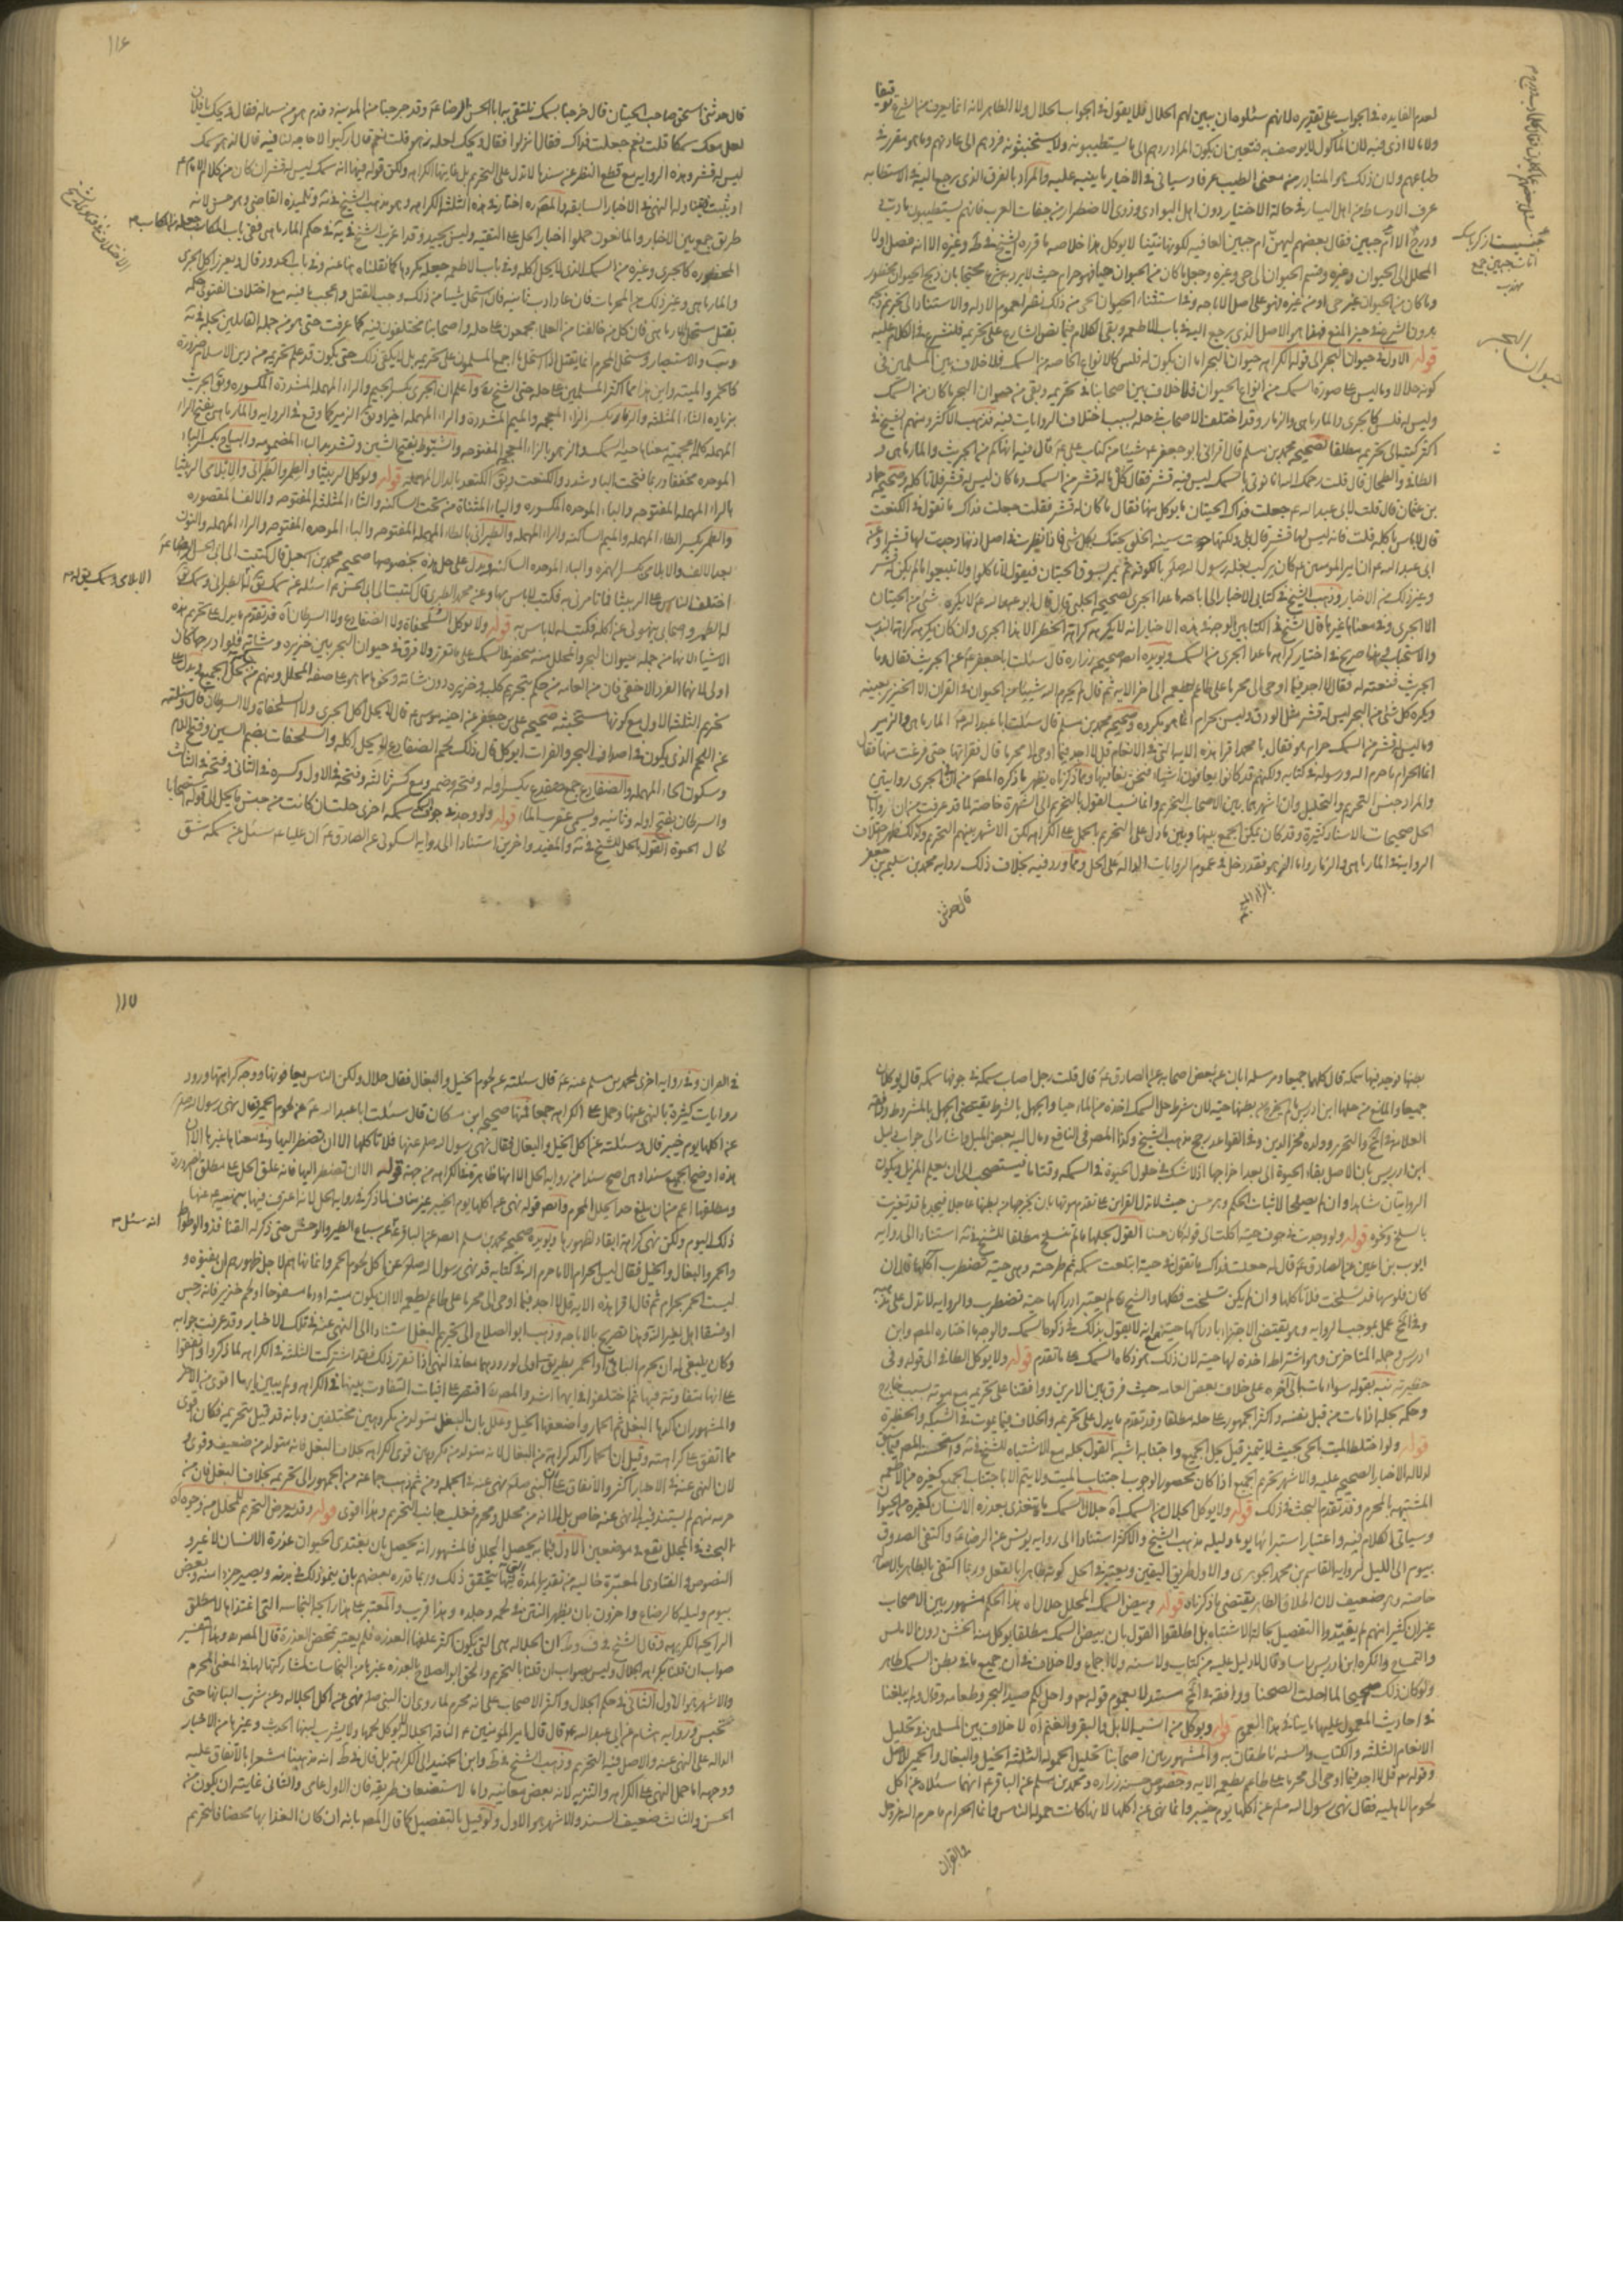 لعدم الفايده في الجواب على تقديره لانهم سئلوه ان يبين لهم الحلال فلا يقول في الجواب الحلال ولا الطاهر لانه انما يعرف من الشرع توقيفا
ولا ما لا اذى فيه لان المأكول لا يوصف به فتعين ان يكون المراد ردهم الى ما يستطيبونه ولا يستخبثونه فردهم الى عادتهم وما هو مقرر في
طباعهم ولان ذلك هو المتبادر من معنى الطيب عرفا وسياتي في الاخبار ما ينبه عليه والمراد بالعرف الذي يرجع اليه في الاستطابه
عرف الاوساط من اهل اليسار في حالة الاختيار دون اهل البوادي وذوي الاضطرار من جفات العرب فانهم يستطيبون ما دب
ودرج الا ام حبين فقال بعضهم ليهن ام حبين العافيه لكونها لا يوكل هذا خلاصه ما قرره الشيخ في ط وغيره الا انه فصل اولا
المحلل الى الحيوان وغيره وقسم الحيوان الى حي وغيره وجعل ما كان من الحيوان حيا فهو حرام حيث لا يرد به شرع محتجا بان ذبح الحيوان محظور
وما كان من الحيوان غير حي او من غيره فهو على اصل الاباحه وفي استثناء الحيوان الحي من ذلك نظر لعموم الادله والاستناد الى تحريم ذبحه
بدون الشرع في حيز المنع فهذا هو الاصل الذي يرجع اليه في باب الاطعمه وبقي الكلام فيما نص الشارع على تحريمه فلنشرع في الكلام عليه
قوله الاول في حيوان البحر الى قوله الكراهه حيوان البحر اما ان يكون له فلس كالانواع الخاصه من السمك فلا خلاف بين المسلمين في
كونه حلالا وما ليس على صورة السمك من انواع الحيوان فلا خلاف بين اصحابنا في تحريمه وبقي من حيوان البحر ما كان من السمك
وليس له فلس كالجري والمارماهي والزمار وقد اختلف الاصحاب في حله بسبب اختلاف الروايات فيه فذهب الاكثر ومنهم الشيخ في
اكثر كتبه الى تحريمه مطلقا لصحيحه محمد بن مسلم قال اقراني ابو جعفر ع شيئا من كتاب علي ع قال فيه انهاكم عن الجريث والمارماهي و
الطافي والطحال قال قلت رحمك الله انا نوتي بالسمك ليس فيه قشر فقال كل ما له قشر من السمك وما كان ليس له قشر فلا تاكله وصحيحه حماد
بن عثمان قال قلت لابي عبد الله ع جعلت فداك الحيتان ما يوكل منها فقال ما كان له قشر فقلت جعلت فداك ما تقول في الكنعت
قال لا باس باكله قلت فانه ليس لها قشر قال بلى ولكنها حوت سيئه الخلق تحتك بكل شئ فاذا نظرت في اصل اذنها وجدت لها قشرا وعن
ابي عبد الله ع ان امير المومنين ع كان يركب بغله رسول الله صلى بالكوفه ثم يمر بسوق الحيتان فيقول لا تاكلوا ولا تبيعوا ما لم يكن له قشر
وغير ذلك من الاخبار وذهب الشيخ في كتابي الاخبار الى اباحه ما عدا الجري لصحيحه الحلبي قال قال ابو عبد الله ع لا يكره شئ من الحيتان
الا الجري وفي معناها غيرها قال الشيخ في الكتابين الوجه في هذه الاخبار انه لا يكره كراهه الحظر الا هذا الجري وان كان يكره كراهه الندب
والاستحباب وهذا صريح في اختيار كراهه ما عدا الجري من السمك ويويده ايضا صحيحه زراره قال سئلت ابا جعفر ع عن الجريث فقال وما
الجريث فنعته له فقال لا اجد فيما اوحي الى محرما على طاعم يطعمه الى اخر الايه ثم قال لم يحرم الله شيئا من الحيوان في القران الا الخنزير بعينه
ويكره كل شئ من البحر ليس له قشر مثل الورق وليس بحرام انما هو مكروه وصحيحه محمد بن مسلم قال سئلت ابا عبد الله ع عن المارماهي والزمير
وما ليس له قشر من السمك حرام هو فقال يا محمد اقرا هذه الايه التي في الانعام قل لا اجد فيما اوحي الى محرما قال فقراتها حتى فرغت منها فقال
انما الحرام ما حرم الله ورسوله في كتابه ولكنهم قد كانوا يعافون اشياء فنحن نعافها ومما ذكرناه يظهر ما ذكره المصنف من ان في الجري روايتين
والمراد جنس التحريم والتحليل وان اشهرهما بين الاصحاب التحريم وانما نسب القول بالتحريم الى الشهرة خاصة لما قد عرفت من ان روايات
الحل صحيحات الاسناد كثيرة وقد كان يمكن الجمع بينها وبين ما دل على التحريم بالحمل على الكراهه لكن الاشهر بينهم التحريم وكذلك يظهر اختلاف
الروايه في المارماهي والزمار واما الزهو فقد دخل في عموم الروايات الداله على الحل ومما ورد فيه بخلاف ذلك روايه محمد بن سليمن بن جعفر
قال حدثني
حيوان البحر
١١٦
قال حدثني اسحق صاحب الحيتان قال خرجنا بسمك نتلقى به ابا الحسن الرضا ع وقد خرجنا من المدينه وقدم هو من سفر له فقال ويحك يا فلان
لعل معك سمكا قلت نعم جعلت فداك فقال انزلوا فقال ويحك لعله زهو قلت نعم قال اركبوا لا حاجه لنا فيه قال الزهو سمك
ليس له قشر وهذه الروايه مع قطع النظر عن سندها لا تدل على التحريم بل غايتها الكراهه ولكن قوله فيها انه سمك ليس له قشر ان كان من كلام الامام ع
او ثبت فيها ولها النهي في الاخبار السابقه والمصنف ره اختار في هذه الثلثه الكراهه وهو مذهب الشيخ في يه وتلميذه القاضي وهو حسن لانه
طريق جمع بين الاخبار والمانعون حملوا اخبار الحل على التقيه وليس بجيد وقد اغرب الشيخ في يه في حكم المارماهي ففي باب المكاسب جعل
المحظوره كالجري وغيره من السمك الذي لا يحل اكله وفي باب الاطعمه جعله مكروها كما نقلناه هنا عنه وفي باب الحدود قال ويعزر اكل الجري
والمارماهي وغير ذلك من المحرمات فان عاد ادب ثانيه فان استحل شيئا من ذلك وجب القتل والعجب ما فيه مع اختلاف الفتوى حكمه
بقتل مستحل المارماهي فان كل من خالفنا من العلماء مجمعون على حله واصحابنا مختلفون فيه كما عرفت حتى هو من جمله القائلين بحله في يه
ويب والاستبصار ومستحل المحرم انما يقتل اذا استحل ما اجمع المسلمون على تحريمه بل لا يكفي ذلك حتى يكون قد علم تحريمه من دين الاسلام ضرورة
كالخمر والميته واين هذا مما اكثر المسلمين على حله حتى الشيخ ره واعلم ان الجري بكسر الجيم والراء المهمله المشددة المكسوره ويق الجريث
بزياده الثاء المثلثه والزمار بكسر الزاء المعجمه والميم المشددة والراء المهمله اخيرا ويق الزمير كما وقع في الروايه والمارماهي بفتح الراء
المهمله كلمه اعجميه معناها حيه السمك والزهو بالزاء المعجمه المفتوحه والشبوط بفتح الشين وتشديد الباء المضمومه والربيثا
الموحده مخففا وربما فتحت الباء وشدد والكنعت ويق الكنعد بالدال المهمله قوله ويوكل الربيثا والطمر والطبراني والابلامي الربيثا
بالراء المهمله المفتوحه والباء الموحده المكسوره والياء المثناة من تحت الساكنه والثاء المثلثه المفتوحه والالف المقصوره
والطمر بكسر الطاء المهمله والميم الساكنه والراء المهمله والطبراني بالطاء المهمله المفتوحه والباء الموحده المفتوحه والراء المهمله والنون
بعد الالف والابلامي بكسر الهمزه والباء الموحده الساكنه ويدل على حل هذه بخصوصها صحيحه محمد بن اسمعيل قال كتبت الى ابي الحسن الرضا ع
اختلف الناس على الربيثا فما تامرني به فكتب لا باس بها وعن محمد الطبري قال كتبت الى ابي الحسن ع اسئله عن سمك يق له الطبراني وسمك يق
له الطمر واصحابي ينهوني عن اكله فكتب لا باس به قوله ولا يوكل السلحفاة ولا الضفادع ولا السرطان اه قد تقدم ما يدل على تحريم هذه
الاشياء لانها من جمله حيوان البحر والمحلل منه منحصر في السمك على ما تقرر ولا فرق في حيوان البحر بين خنزيره وشاته
تحريم الثلثه الاول مع كونها مستخبثه صحيحه علي بن جعفر عن اخيه موسى ع قال لا يحل اكل الجري ولا السلحفاة ولا السرطان قال وسئلته
عن اللحم الذي يكون في اصداف البحر والفرات ايوكل قال ذلك لحم الضفادع لا يحل اكله والسلحفات بضم السين وفتح اللام
وسكون الحاء المهمله والضفادع جمع ضفدع بكسر اوله وفتحه وضمه مع كسر ثالثه وفتحه في الاول وكسره في الثاني وفتحه في الثالث
والسرطان بفتح اوله وثانيه ويسمى عقرب الماء قوله ولو وجد في جوف سمكه سمكة اخرى حلت ان كانت من جنس ما يحل الى قوله استصحابا
لحال الحيوة القول بالحل للشيخ في يه والمفيد واخرين استنادا الى روايه السكوني عن الصادق ع ان عليا ع سئل عن سمكه شق
بطنها فوجد فيها سمكه قال كلهما جميعا ومرسله ابان عن بعض اصحابه عن الصادق ع قال قلت رجل اصاب سمكه في جوفها سمكه قال يوكلان
جميعا والمانع من حلها ابن ادريس ما لم يخرج من بطنها حيه لان شرط حل السمك اخذه من الماء حيا والجهل بالشرط يقتضي الجهل بالمشروط ووافقه
العلامه في المخ والتحرير وولده فخر الدين وفي القواعد رجح مذهب الشيخ وكذا المصنف في النافع ومال اليه بعض الميل واشار الى جواب دليل
ابن ادريس بان الاصل بقاء الحيوة الى بعد اخراجها اذ لا شك في حلول الحيوة في السمكه وقتا ما فيستصحب الى ان يعلم المزيل ويكون
الروايتان شاهدا وان لم يصلحا لاثبات الحكم وهو حسن حيث لا تدل القراين على تقدم موتها بان يخرجها من بطنها عاجلا فيجدها قد تغيرت
بالسلخ ونحوه قوله ولو وجدت في جوف حيه اكلت الى قوله كان حسنا القول بحلها ما لم تنسلخ مطلقا للشيخ في يه استنادا الى روايه
ايوب بن اعين عن الصادق ع قال له جعلت فداك ما تقول في حيه ابتلعت سمكه ثم طرحته وهي حيه تضطرب اآكلها قال ان
كان فلوسها قد تسلخت فلا تاكلها وان لم يكن تسلخت فكلها والشيخ ره لم يعتبر ادراكها حيه تضطرب والروايه لا تدل على غيره
وفي المخ عمل بموجب الروايه وهو يقتضي الاجتزاء بادراكها حيه مع انه لا يقول بذلك في ذكوه السمك والوجه ما اختاره المصنف وابن
ادريس وجمله المتاخرين وهو اشتراط اخذه لها حيه لان ذلك هو ذكاه السمك على ما تقدم قوله ولا يوكل الطافي الى قوله وفي
حظيرته نبه بقوله سواء مات الى آخره على خلاف بعض العامه حيث فرق بين الامرين ووافقنا على تحريمه مع موته بسبب خارج
وحكم بحله اذا مات من قبل نفسه واكثر الجمهور على حله مطلقا وقد تقدم ما يدل على تحريمه والخلاف فيما يموت في الشبكه والحظيرة
قوله ولو اختلط الميت بالحي بحيث لا يتميز قيل يحل الجميع واجتنابه اشبه القول بحله مع الاشتباه للشيخ في يه واستحسنه المصنف فيما سبق
لدلاله الاخبار الصحيحه عليه والاشهر تحريم الجميع اذا كان محصورا لوجوب اجتناب الميت ولا يتم الا باجتناب الجميع كغيره من الاطعمه
المشتبهه بالمحرم وقد تقدم البحث في ذلك قوله ولا يوكل الجلال من السمك اه جلال السمك ما يتغذى بعذرة الانسان كغيره من الحيوان
وسياتي الكلام فيه واعتبار استبرائها يوما وليله مذهب الشيخ والاكثر استنادا الى روايه يونس عن الرضا ع واكتفى الصدوق
بيوم الى الليل لروايه القاسم بن محمد الجوهري والاول طريق اليقين ويعتبر في المحل كونه طاهرا بالفعل وربما اكتفى بالطاهر بالاصل
خاصه وهو ضعيف لان اطلاق الطاهر يقتضي ما ذكرناه قوله وبيض السمك المحلل حلال اه هذا الحكم مشهور بين الاصحاب
غير ان كثيرا منهم لم يقيدوا التفصيل بحاله الاشتباه بل اطلقوا القول بان بيض السمك مطلقا يوكل منه الخشن دون الاملس
والمنماع وانكره ابن ادريس راسا وقال لا دليل عليه من كتاب ولا سنه ولا اجماع ولا خلاف في ان جميع ما في بطن السمك طاهر
ولو كان ذلك صحيحا لما احلت الصحنا ووافقه في المخ مستدلا بعموم قوله تعالى واحل لكم صيد البحر وطعامه وقال ولم يبلغنا
في احاديث المعمول عليها ما ينافي هذا العموم قوله ويوكل من الانسيه الابل والبقر والغنم اه لا خلاف بين المسلمين في تحليل
الانعام الثلثه والكتاب والسنه ناطقان به والمشهور بين اصحابنا تحليل الحموله الثلثه الخيل والبغال والحمير للاصل
وقوله تعالى قل لا اجد فيما اوحي الى محرما على طاعم يطعمه الايه وخصوص حسنه زراره ومحمد بن مسلم عن الباقر ع انهما سئلاه عن اكل
لحوم الاهليه فقال نهى رسول الله صلعم عن اكلها يوم خيبر وانما نهى عن اكلها لانها كانت حموله للناس وانما الحرام ما حرم الله عز وجل
في القران
١١٧
في القران وفي روايه اخرى لمحمد بن مسلم عنه ع قال سئلته عن لحوم الخيل والبغال فقال حلال ولكن الناس يعافونها ووجه كراهتها ورود
روايات كثيرة بالنهي عنها وحمل على الكراهه جمعا فمنها صحيحه ابن مسكان قال سئلت ابا عبد الله ع عن لحوم الحمير فقال نهى رسول الله صلى
عن اكلها يوم خيبر قال وسئلته عن اكل الخيل والبغال فقال نهى رسول الله صلى عنها فلا تاكلها الا ان تضطر اليها وفي معناها غيرها الا ان
هذه اوضح الجميع سندا وهي اصح سندا من روايه الحل الا انها ظاهرة في الكراهه من جهه قوله الا ان تضطر اليها فانه علق الحل على مطلق الضرورة
ومطلقها اعم من ان يبلغ حدا يحلل المحرم وايضا قوله نهى عن اكلها يوم خيبر غير مناف لما ذكر في روايه الحل لانه اعترف فيها
ذلك اليوم ولكن نهي كراهة ابقاء لظهورها ويويده صحيحه محمد بن مسلم ايضا عن الباقر ع عن سباع الطير والوحش حتى ذكر له القنافذ والوطواط
والحمر والبغال والخيل فقال ليس الحرام الا ما حرم الله في كتابه قد نهى رسول الله صلى عن اكل لحوم الحمر وانما نهاهم لاجل ظهورهم ان يفنوه و
ليست الحمر بحرام ثم قال اقرا هذه الايه قل لا اجد فيما اوحي الى محرما على طاعم يطعمه الا ان يكون ميته او دما مسفوحا او لحم خنزير فانه رجس
او فسقا اهل لغير الله به وهذا تصريح بالاباحه وذهب ابو الصلاح الى تحريم البغل استنادا الى النهي عنه في تلك الاخبار وقد عرفت جوابه
وكان ينبغي له ان يحرم الباقي او الحمر بطريق اولى لورودهما معا في النهي اذا تقرر ذلك فقد اشتركت الثلثه في الكراهه لما ذكر واتفقوا
على انها متفاوته فيها ثم اختلفوا في ايها اشد والمصنف ره اقتصر على اثبات التفاوت بينها في الكراهه ولم يبين ايها اقوى من الاخر
والمشهور ان آكدها البغل ثم الحمار واضعفها الخيل وعلل بان البغل متولد من مكروهين مختلفين وبانه قد قيل بتحريمه فكان اقوى
مما اتفق على كراهته وقيل ان الحمار آكد كراهه من البغال لانه متولد من مكروهين قوي الكراهه بخلاف البغل فانه متولد من ضعيف وقوي و
لان النهي عنه في الاخبار اكثر والاتفاق على ان النبي صلى نهى عنه في الجمله ومن ثم ذهب جماعه من الجمهور الى تحريمه بخلاف البغل فان من
حرمه منهم لم يستند فيه الى نهي عنه خاص بل لانه من محلل ومحرم فغلب جانب التحريم وهذا اقوى قوله وقد يعرض التحريم للمحلل من وجوه اه
البحث في الجلل يقع في موضعين الاول فيما به يحصل الجلل فالمشهور انه يحصل بان يغتذي الحيوان عذرة الانسان لا غير و
النصوص والفتاوى المعتبرة خاليه من تقدير المدة التي فيها يتحقق ذلك وربما قدره بعضهم بان ينمو ذلك في بدنه ويصير جزءا منه وبعض
بيوم وليله كالرضاع واخرون بان يظهر النتن في لحمه وجلده وهذا قريب والمعتبر على هذا رائحه النجاسه التي اغتذاها لا مطلق
الرائحه الكريهه وقال الشيخ في ف و ط ان الجلاله هي التي يكون اكثر علفها العذره فلم يعتبر تمحض العذرة قال المصنف وهذا التفسير
صواب ان قلنا بكراهه الجلال وليس بصواب ان قلنا بالتحريم والحق ابو الصلاح بالعذره غيرها من النجاسات لمشاركتها لها في المعنى المحرم
والاشهر هو الاول الثاني في حكم الجلال واكثر الاصحاب على انه محرم لما روي ان النبي صلى نهى عن اكل الجلاله وعن شرب البانها حتى
تحبس وروايه هشام عن ابي عبد الله ع قال قال امير المومنين ع الناقه الجلاله لا يوكل لحمها ولا يشرب لبنها الحديث وغيرها من الاخبار
الداله على النهي عنه والاصل فيه التحريم وذهب الشيخ في ط وابن الجنيد الى الكراهه بل قال في ط انه مذهبنا مشعرا بالاتفاق عليه
ووجهه اما حمل النهي على الكراهه والتنزيه لانه بعض معانيه واما لاستضعاف طريقه فان الاول عامي والثاني غايته ان يكون من
الحسن والثالث ضعيف السند والاشهر هو الاول ولو قيل بالتفصيل كما قال المصنف بانه ان كان الغذاء بها محضا فالتحريم